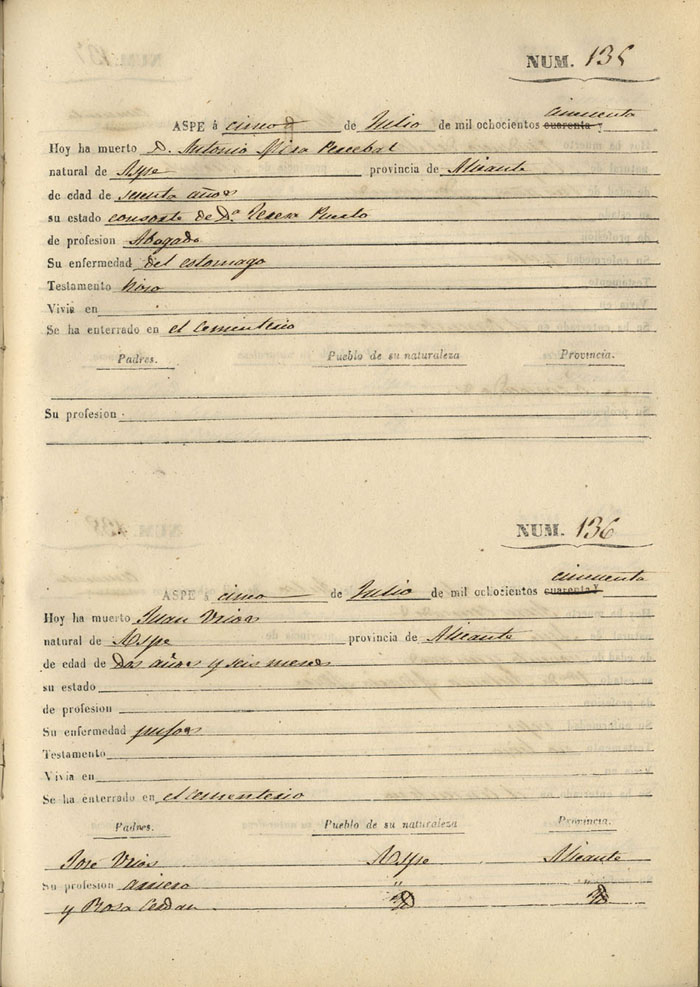 NUM. 135
cincuenta
ASPE á cinco de Julio de mil ochocientos cuarenta y
Hoy ha muerto D. Antonio Mira Percebal
natural de Aspe provincia de Alicante
de edad de sesenta años
su estado consorte de Dª. Teresa Puerto
de profesion Abogado
Su enfermedad del estomago
Testamento hizo
Vivia en
Se ha enterrado en el Cementerio
Padres. Pueblo de su naturaleza Provincia.
Su profesion
NUM. 136
cincuenta
ASPE á cinco de Julio de mil ochocientos cuarenta y
Hoy ha muerto Juan Urios
natural de Aspe provincia de Alicante
de edad de dos años y seis meses
su estado
de profesion
Su enfermedad pujos
Testamento
Vivia en
Se ha enterrado en el Cementerio
Padres. Pueblo de su naturaleza Provincia.
José Urios Aspe Alicante
Su profesion arriero " "
y Rosa Cerdan